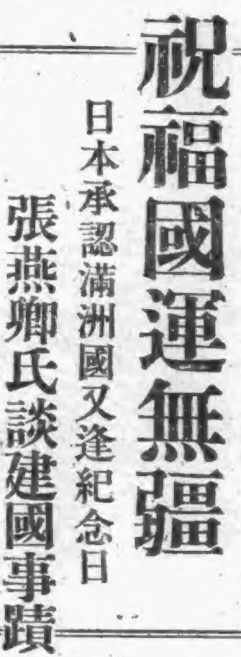 祝福國運無疆
日本承認滿洲國又逢紀念日
張燕卿氏談建國事蹟